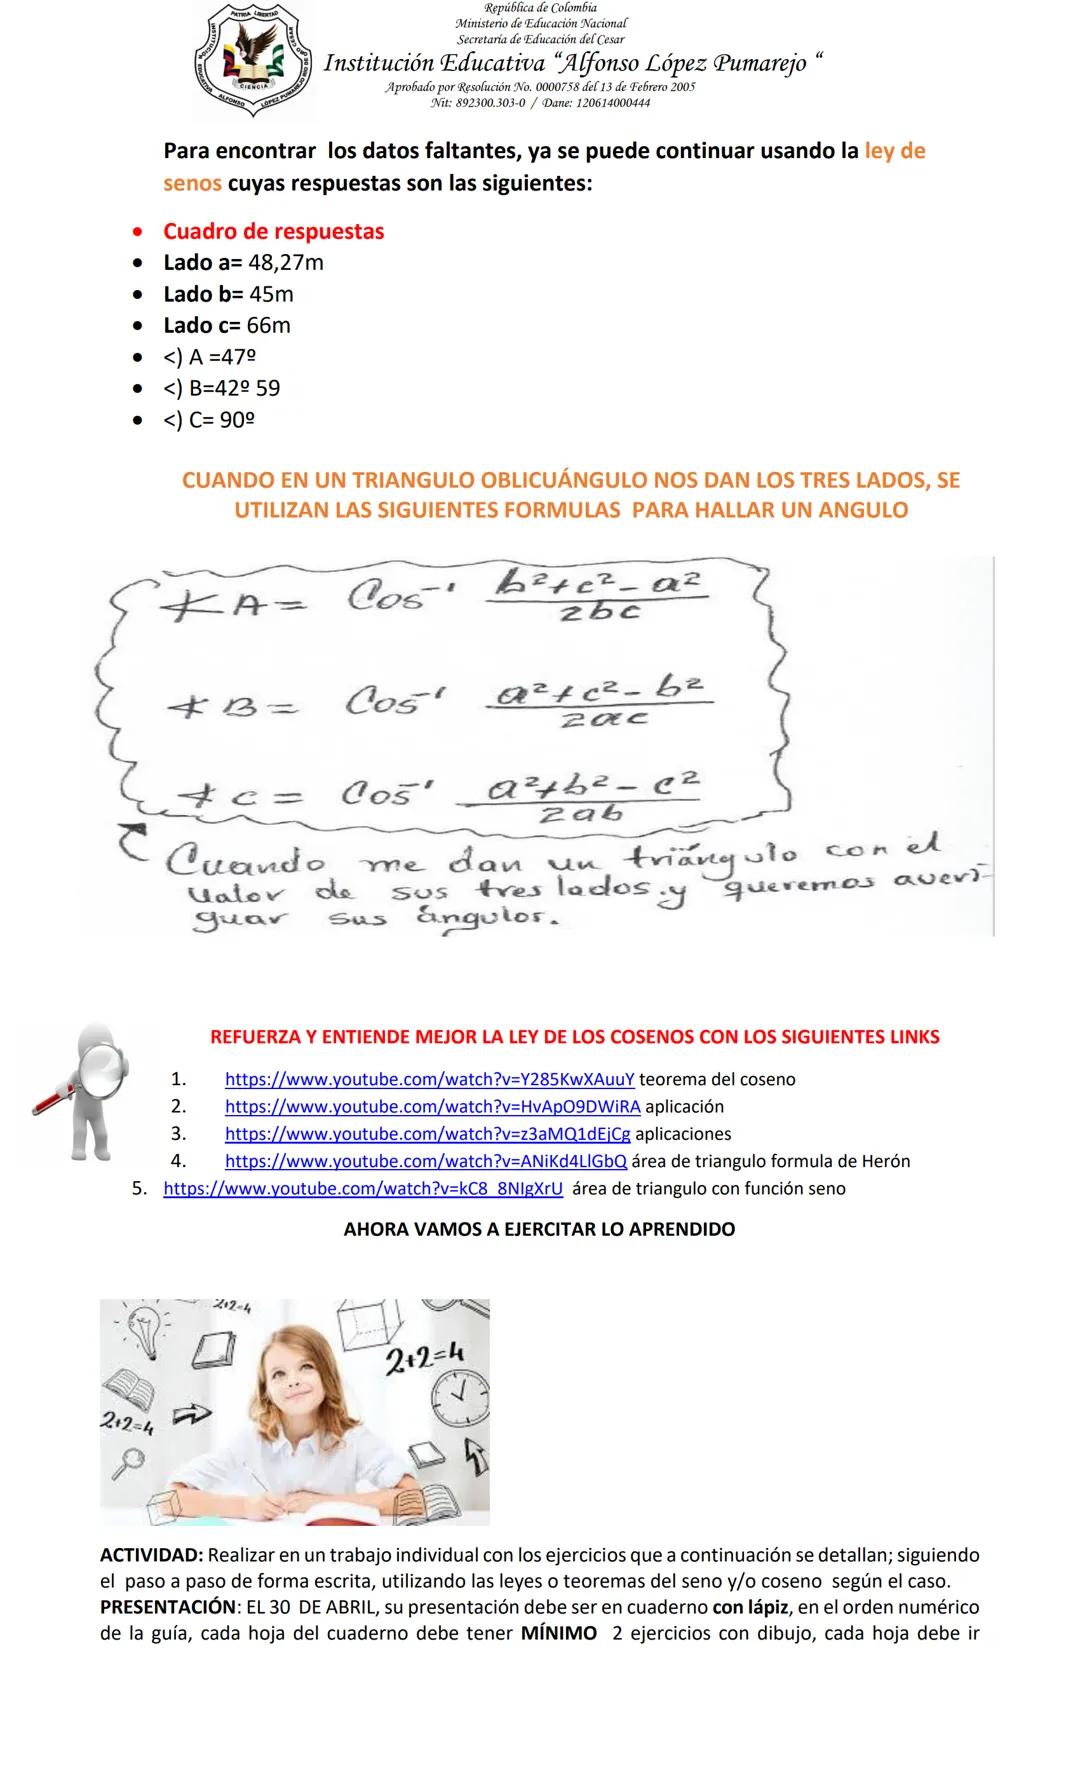 PATRIA LIBERTAD
INSTITUCION EDUCATIVA ALFONSO LÓPEZ PUMAREJO
CIENCIA
República de Colombia
Ministerio de Educación Nacional
Secretaría de Educación del Cesar
Institución Educativa “Alfonso López Pumarejo “
Aprobado por Resolución No. 0000758 del 13 de Febrero 2005
Nit: 892300.303-0 / Dane: 120614000444
Para encontrar los datos faltantes, ya se puede continuar usando la ley de
senos cuyas respuestas son las siguientes:
• Cuadro de respuestas
• Lado a= 48,27m
• Lado b= 45m
• Lado c= 66m
• <) A =47º
• <) B=42º 59
• <) C= 90º
CUANDO EN UN TRIANGULO OBLICUÁNGULO NOS DAN LOS TRES LADOS, SE
UTILIZAN LAS SIGUIENTES FORMULAS PARA HALLAR UN ANGULO
∢ A = Cos⁻¹ b²+c²-a²
2bc
∢ B = Cos⁻¹ a²+c²-b²
2ac
∢ C = Cos⁻¹ a²+b²-c²
2ab
Cuando me dan un triángulo con el
valor de sus tres lados y queremos averi-
guar sus ángulos.
REFUERZA Y ENTIENDE MEJOR LA LEY DE LOS COSENOS CON LOS SIGUIENTES LINKS
1. https://www.youtube.com/watch?v=Y285KwXAuuY teorema del coseno
2. https://www.youtube.com/watch?v=HvApO9DWiRA aplicación
3. https://www.youtube.com/watch?v=z3aMQ1dEjCg aplicaciones
4. https://www.youtube.com/watch?v=ANiKd4LlGbQ área de triangulo formula de Herón
5. https://www.youtube.com/watch?v=kC8_8NIgXrU área de triangulo con función seno
AHORA VAMOS A EJERCITAR LO APRENDIDO
2+2=4
2+2=4
2+2=4
ACTIVIDAD: Realizar en un trabajo individual con los ejercicios que a continuación se detallan; siguiendo
el paso a paso de forma escrita, utilizando las leyes o teoremas del seno y/o coseno según el caso.
PRESENTACIÓN: EL 30 DE ABRIL, su presentación debe ser en cuaderno con lápiz, en el orden numérico
de la guía, cada hoja del cuaderno debe tener MÍNIMO 2 ejercicios con dibujo, cada hoja debe ir